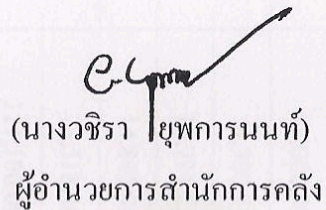 (นางวชิรา ยุพการนนท์)
ผู้อำนวยการสำนักการคลัง